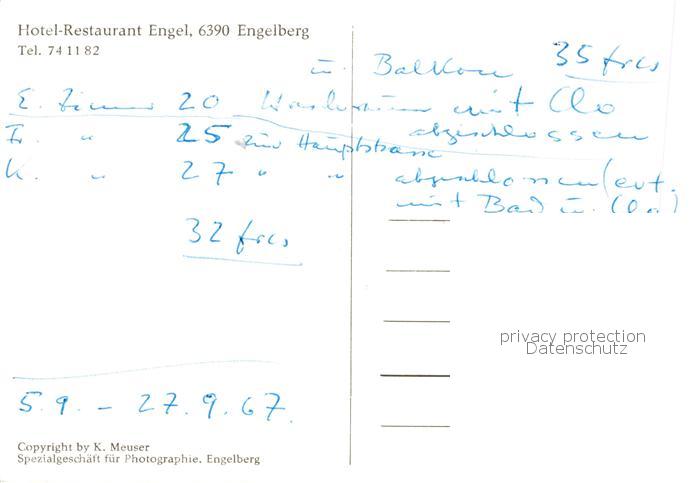 Hotel-Restaurant Engel, 6390 Engelberg
Tel. 74 11 82
u. Balkon 35 frcs
E. Zimmer 20 mit Clo
Fr. " 25 zur Hauptstrasse abgeschlossen
K. " 27 " " abgeschlossen (evt.
mit Bad u. Clo)
32 frcs
privacy protection
Datenschutz
5.9. - 27.9.67.
Copyright by K. Meuser
Spezialgeschäft für Photographie, Engelberg